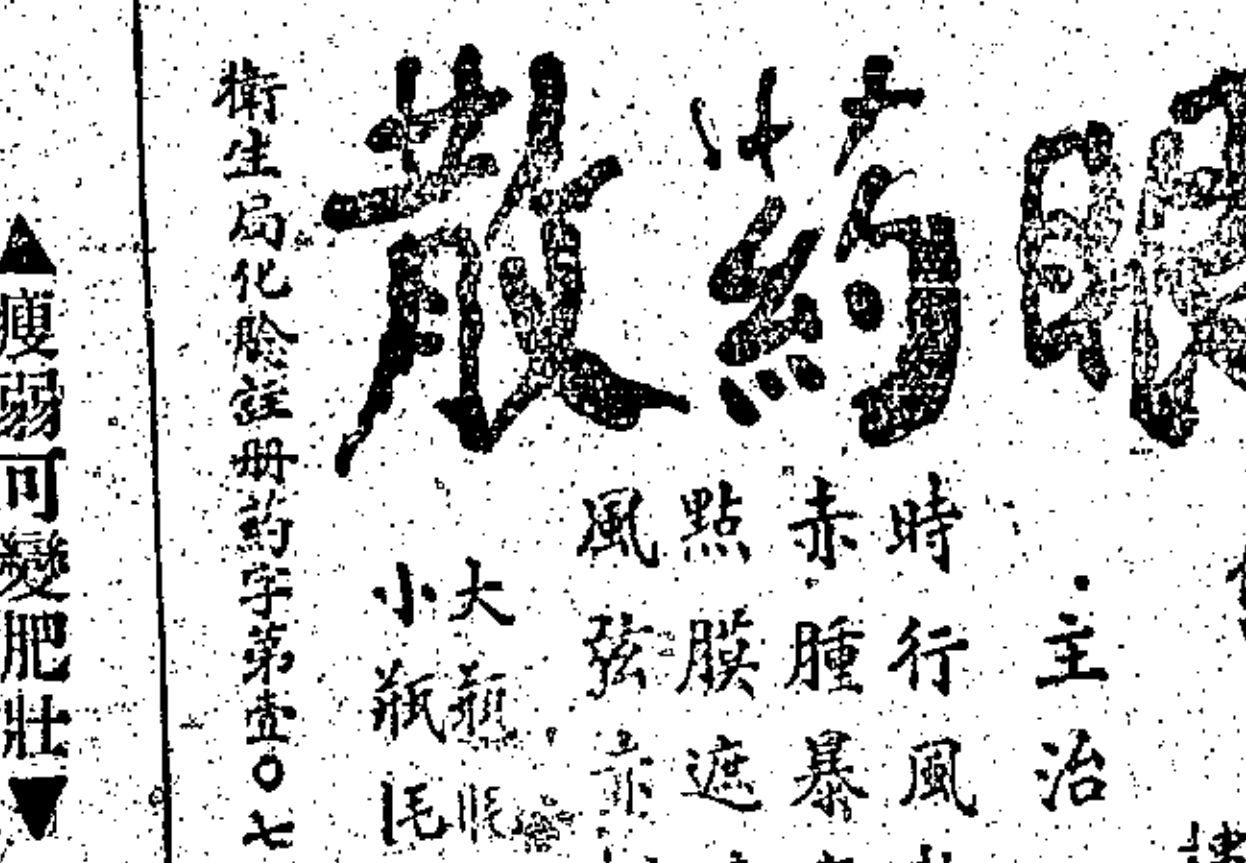 眼葯散
主治
時行風
赤腫暴
點膜遮
風弦赤
大瓶
小瓶
衛生局化驗註册葯字第壹〇七
▲瘦弱可變肥壯▼